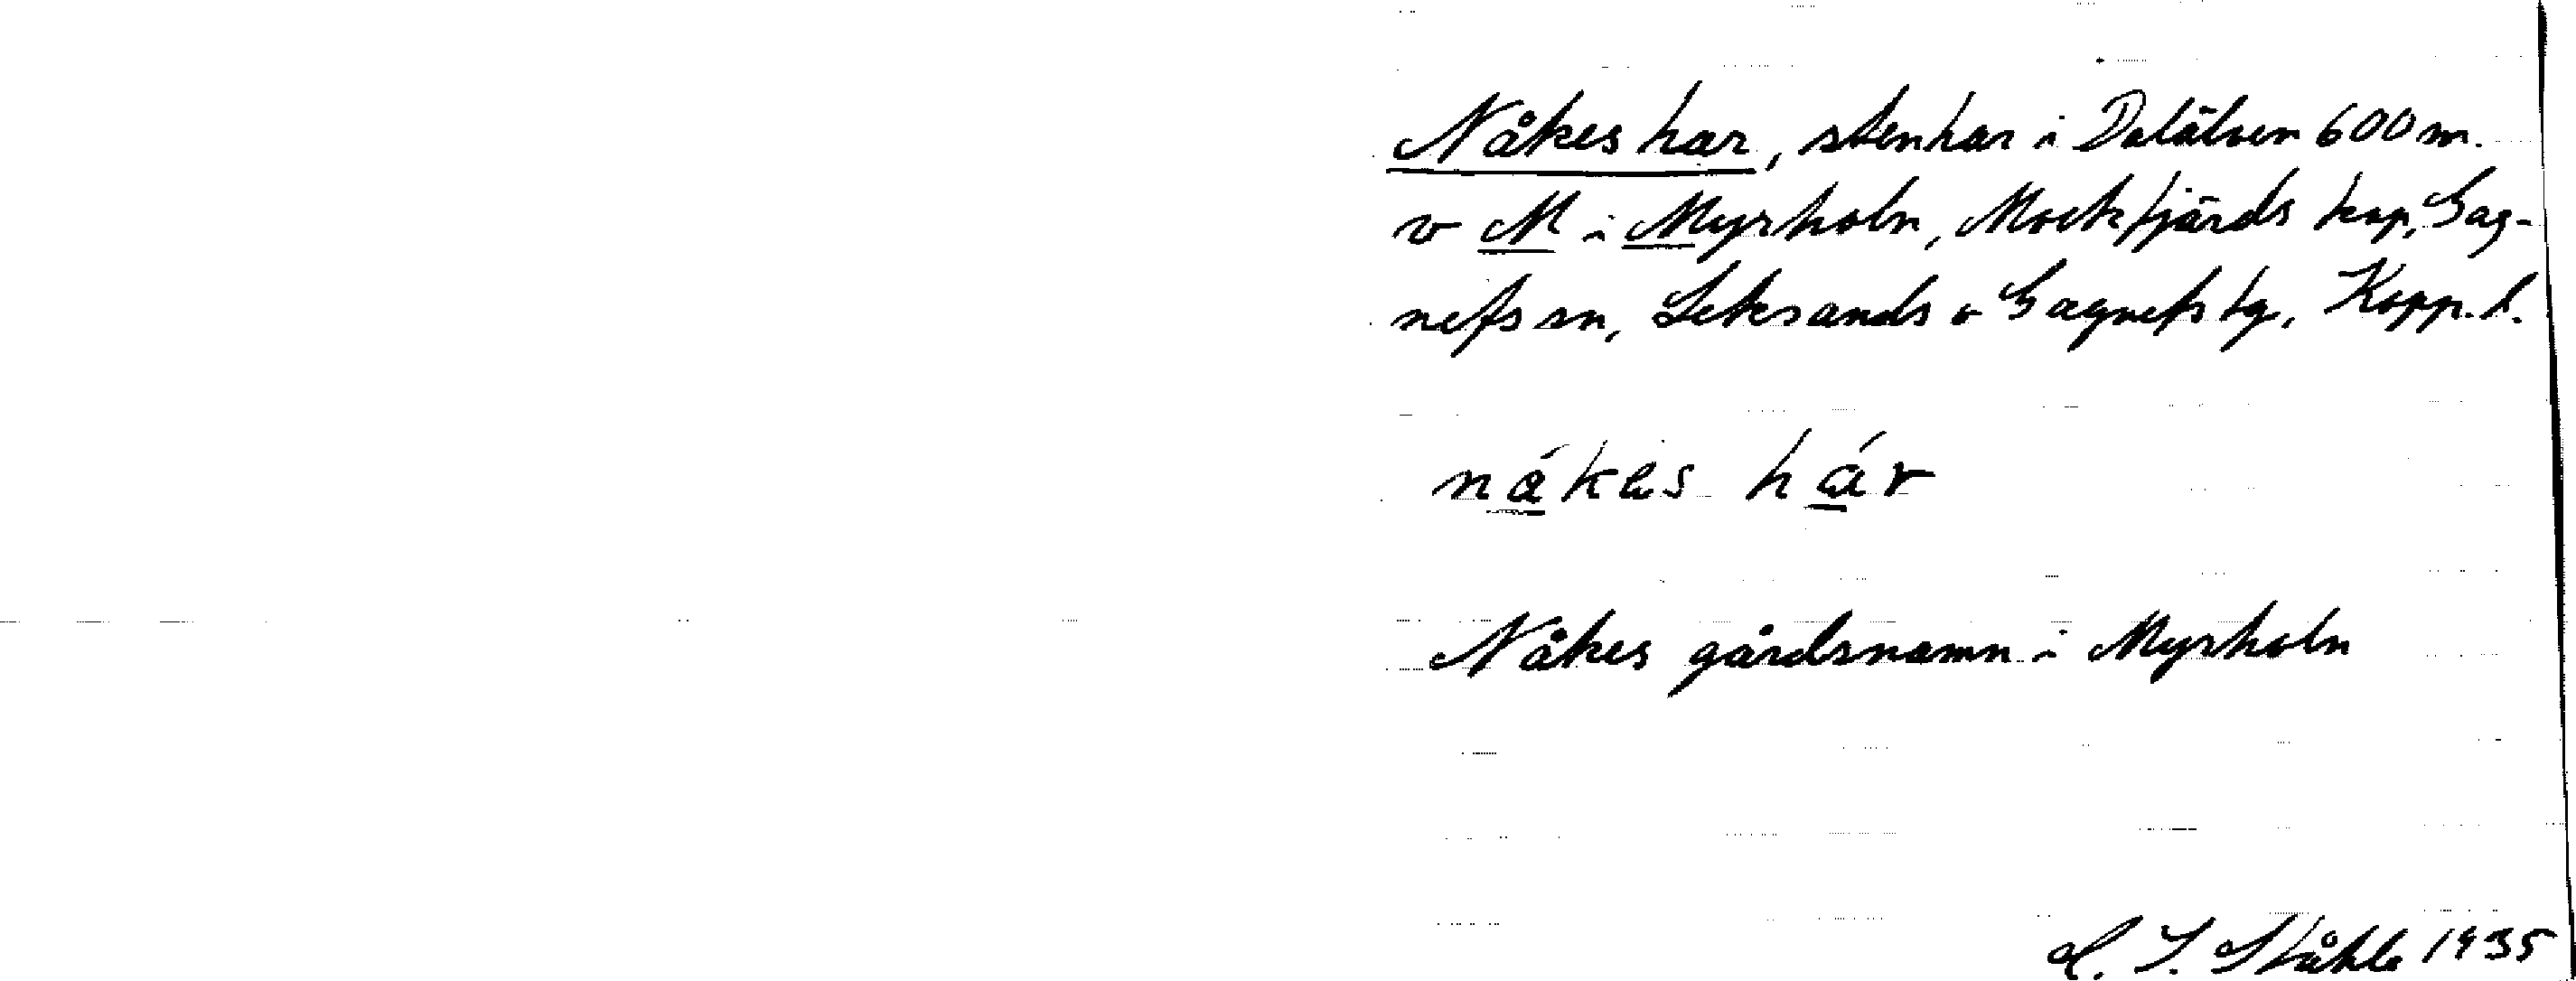 Nåkes har, stenhar i Dalälven 600 m.
v M i Myrholn, Mockfjärds kap, Gag-
nefs sn, Leksands o Gagnefs tg, Kopp. l.
nákes hár
Nåkes gårdsnamn i Myrholn
C. I. Ståhle 1935